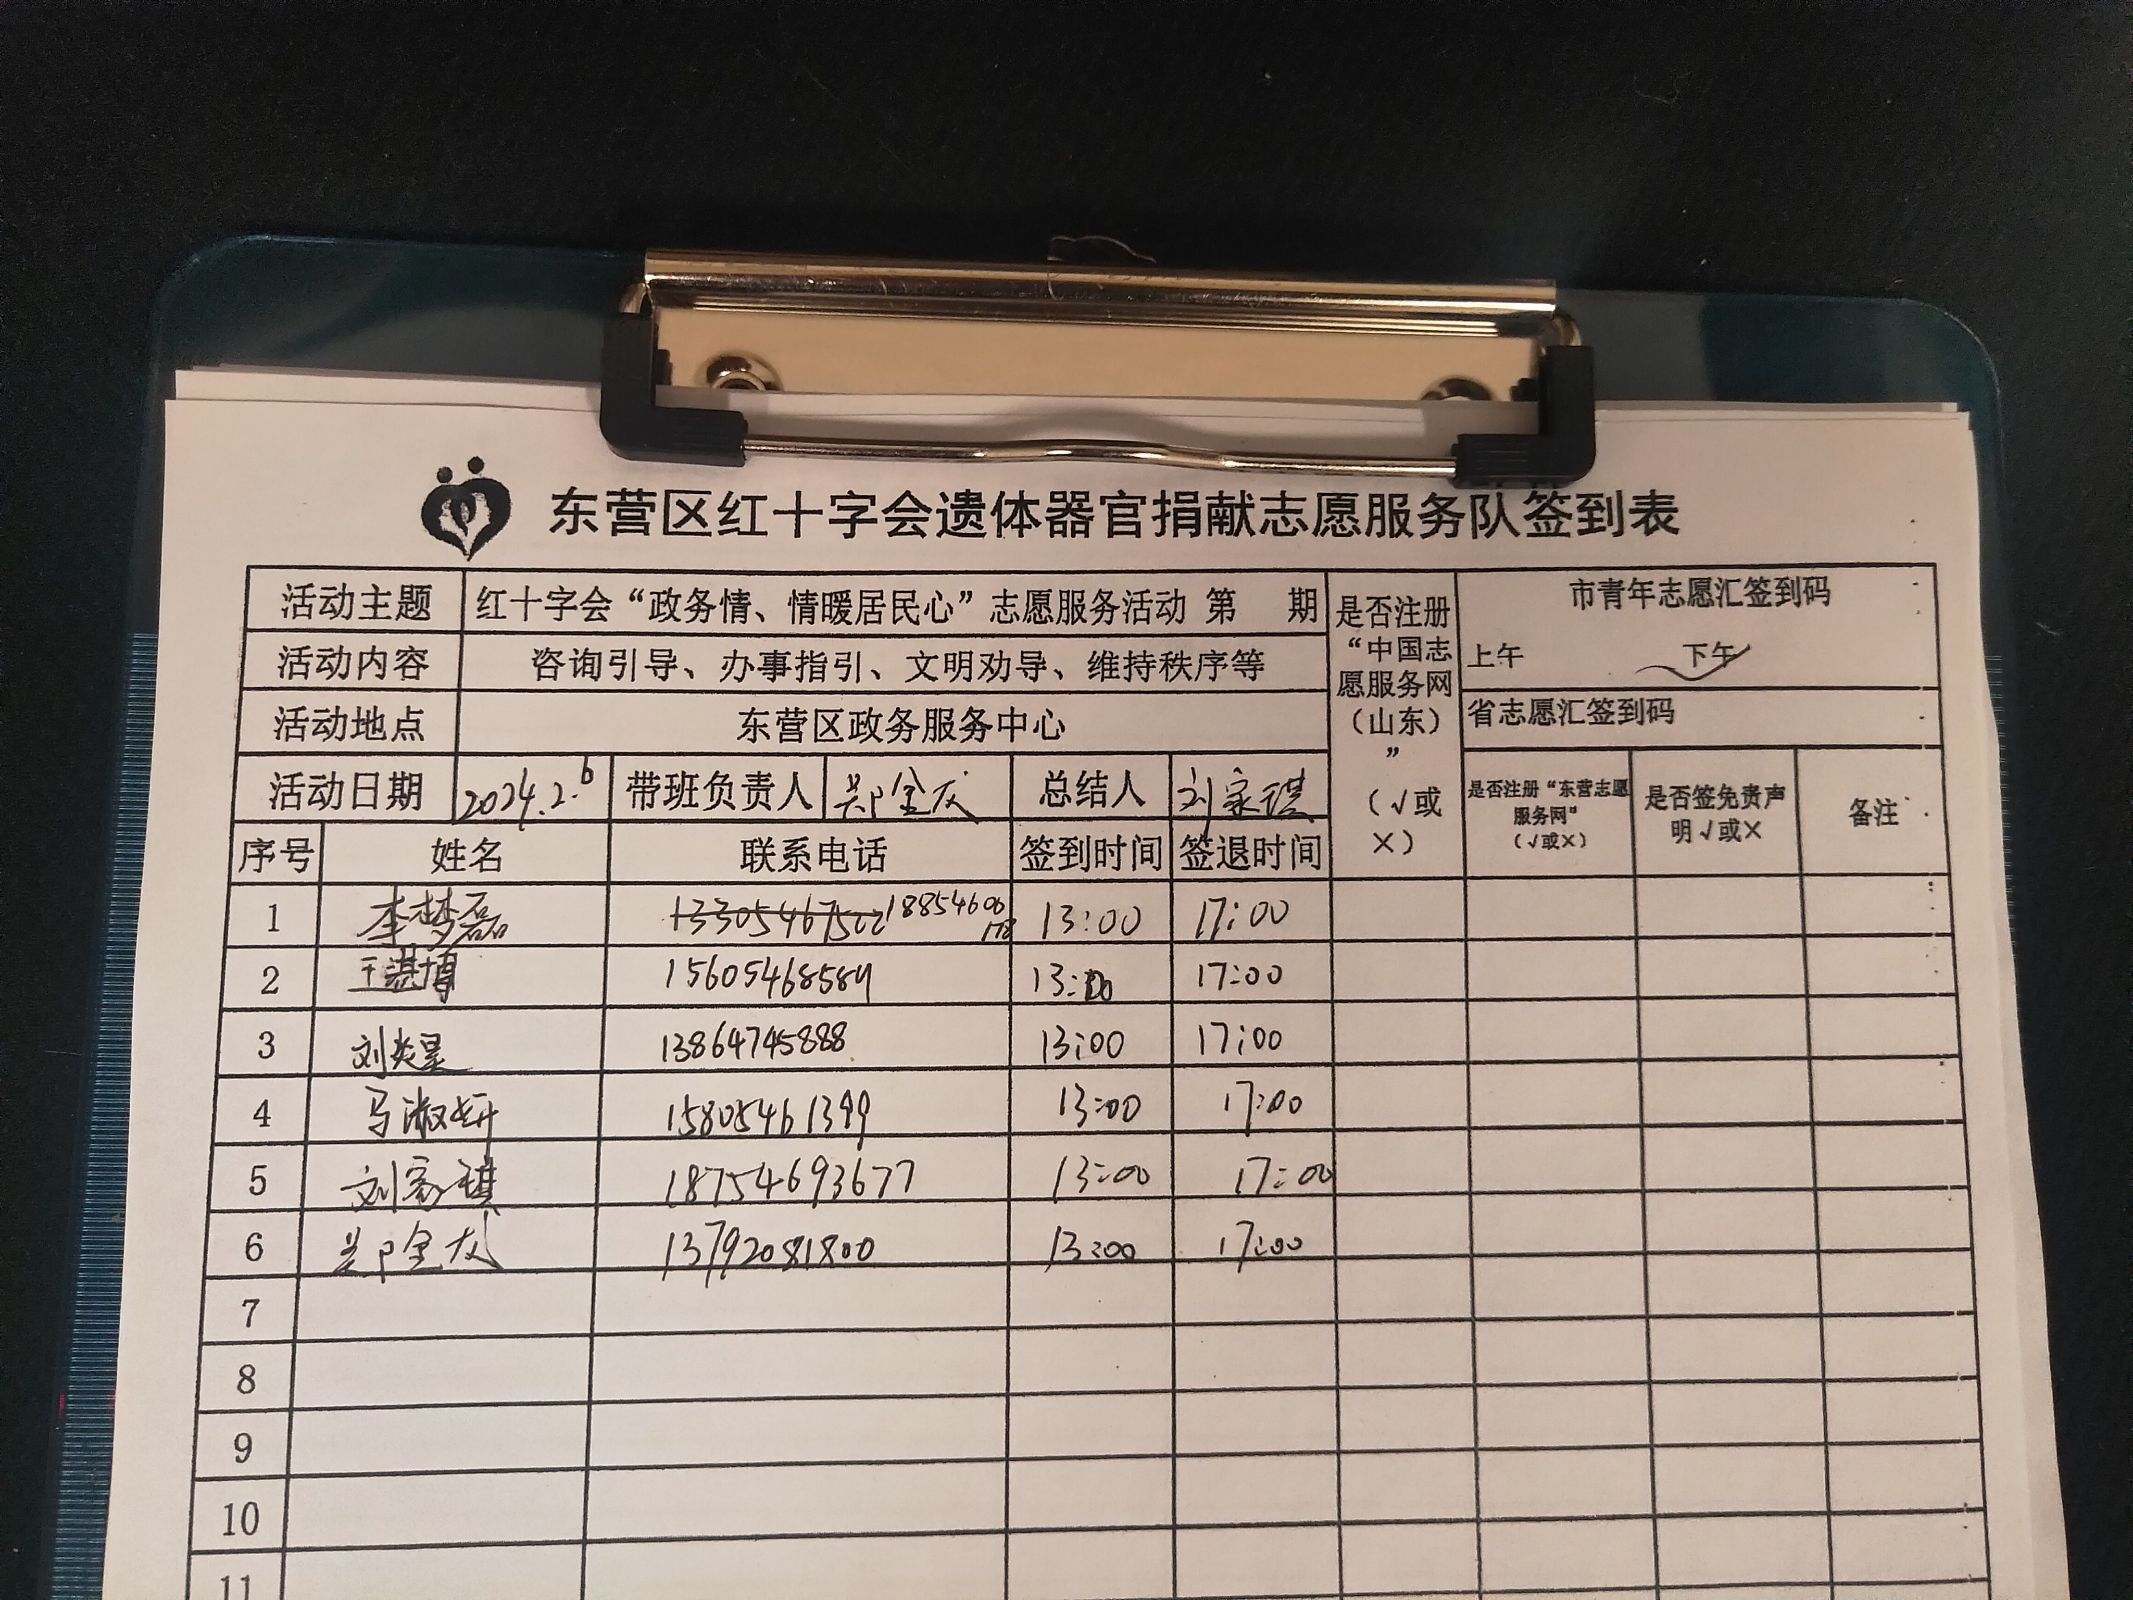 东营区红十字会遗体器官捐献志愿服务队签到表
活动主题 红十字会“政务情、情暖居民心”志愿服务活动 第 期
是否注册“中国志愿服务网（山东）”（√或×）
市青年志愿汇签到码
上午 下午
活动内容 咨询引导、办事指引、文明劝导、维持秩序等
活动地点 东营区政务服务中心
省志愿汇签到码
活动日期 2024.2.6 带班负责人 郑金友 总结人 刘家琪
是否注册“东营志愿服务网”（√或×）
是否签免责声明√或×
备注
序号 姓名 联系电话 签到时间 签退时间
1 李梦磊 13:00 17:00
2 王湛博 15605468589 13:00 17:00
3 刘炎昊 13864745888 13:00 17:00
4 马淑妍 15805461399 13:00 17:00
5 刘家琪 18754693677 13:00 17:00
6 郑金友 13792081800 13:00 17:00
7
8
9
10
11